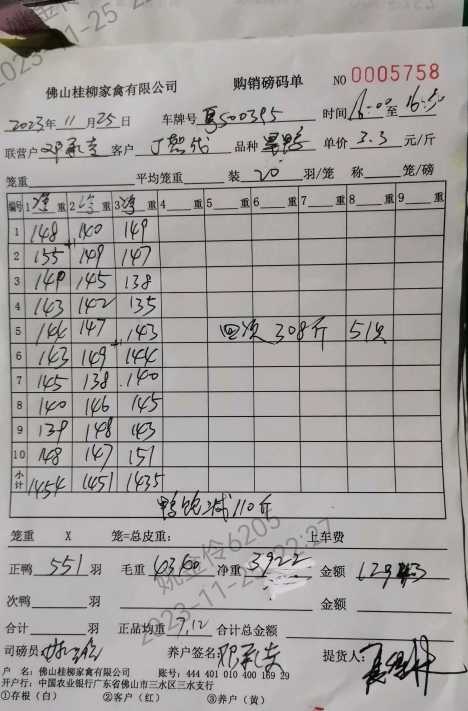 佛山桂柳家禽有限公司 购销磅码单 NO 0005758
2023年 11月 25日 车牌号 S00395 时间 16:00 至 16:50
联营户 客户 品种 单价 3.3 元/斤
笼重 平均笼重 装 20 羽/笼 称 笼/磅
编号 1净重 2净重 3净重 4 重 5 重 6 重 7 重 8 重 9 重
1 148 140 149
2 155 +1 149 147
3 140 145 138
4 143 142 135
5 144 147 143 四次 308斤 51只
6 143 149 +1 144
7 145 138 140
8 140 146 145
9 139 148 143
10 148 147 151
小计 1454 1451 1435
鸭饱减110斤
笼重 X 笼=总皮重: 上车费
正鸭 551 羽 毛重 净重 3922 金额
次鸭 羽 金额
合计 羽 正品均重 7.12 合计总金额
司磅员 养户签名: 提货人:
户 名: 佛山桂柳家禽有限公司 账号: 444 401 010 400 169 29
开户行: 中国农业银行广东省佛山市三水区三水支行
①存根(白) ②客户(红) ③养户(黄)
姚金伶6205
2023-11-25 22:27